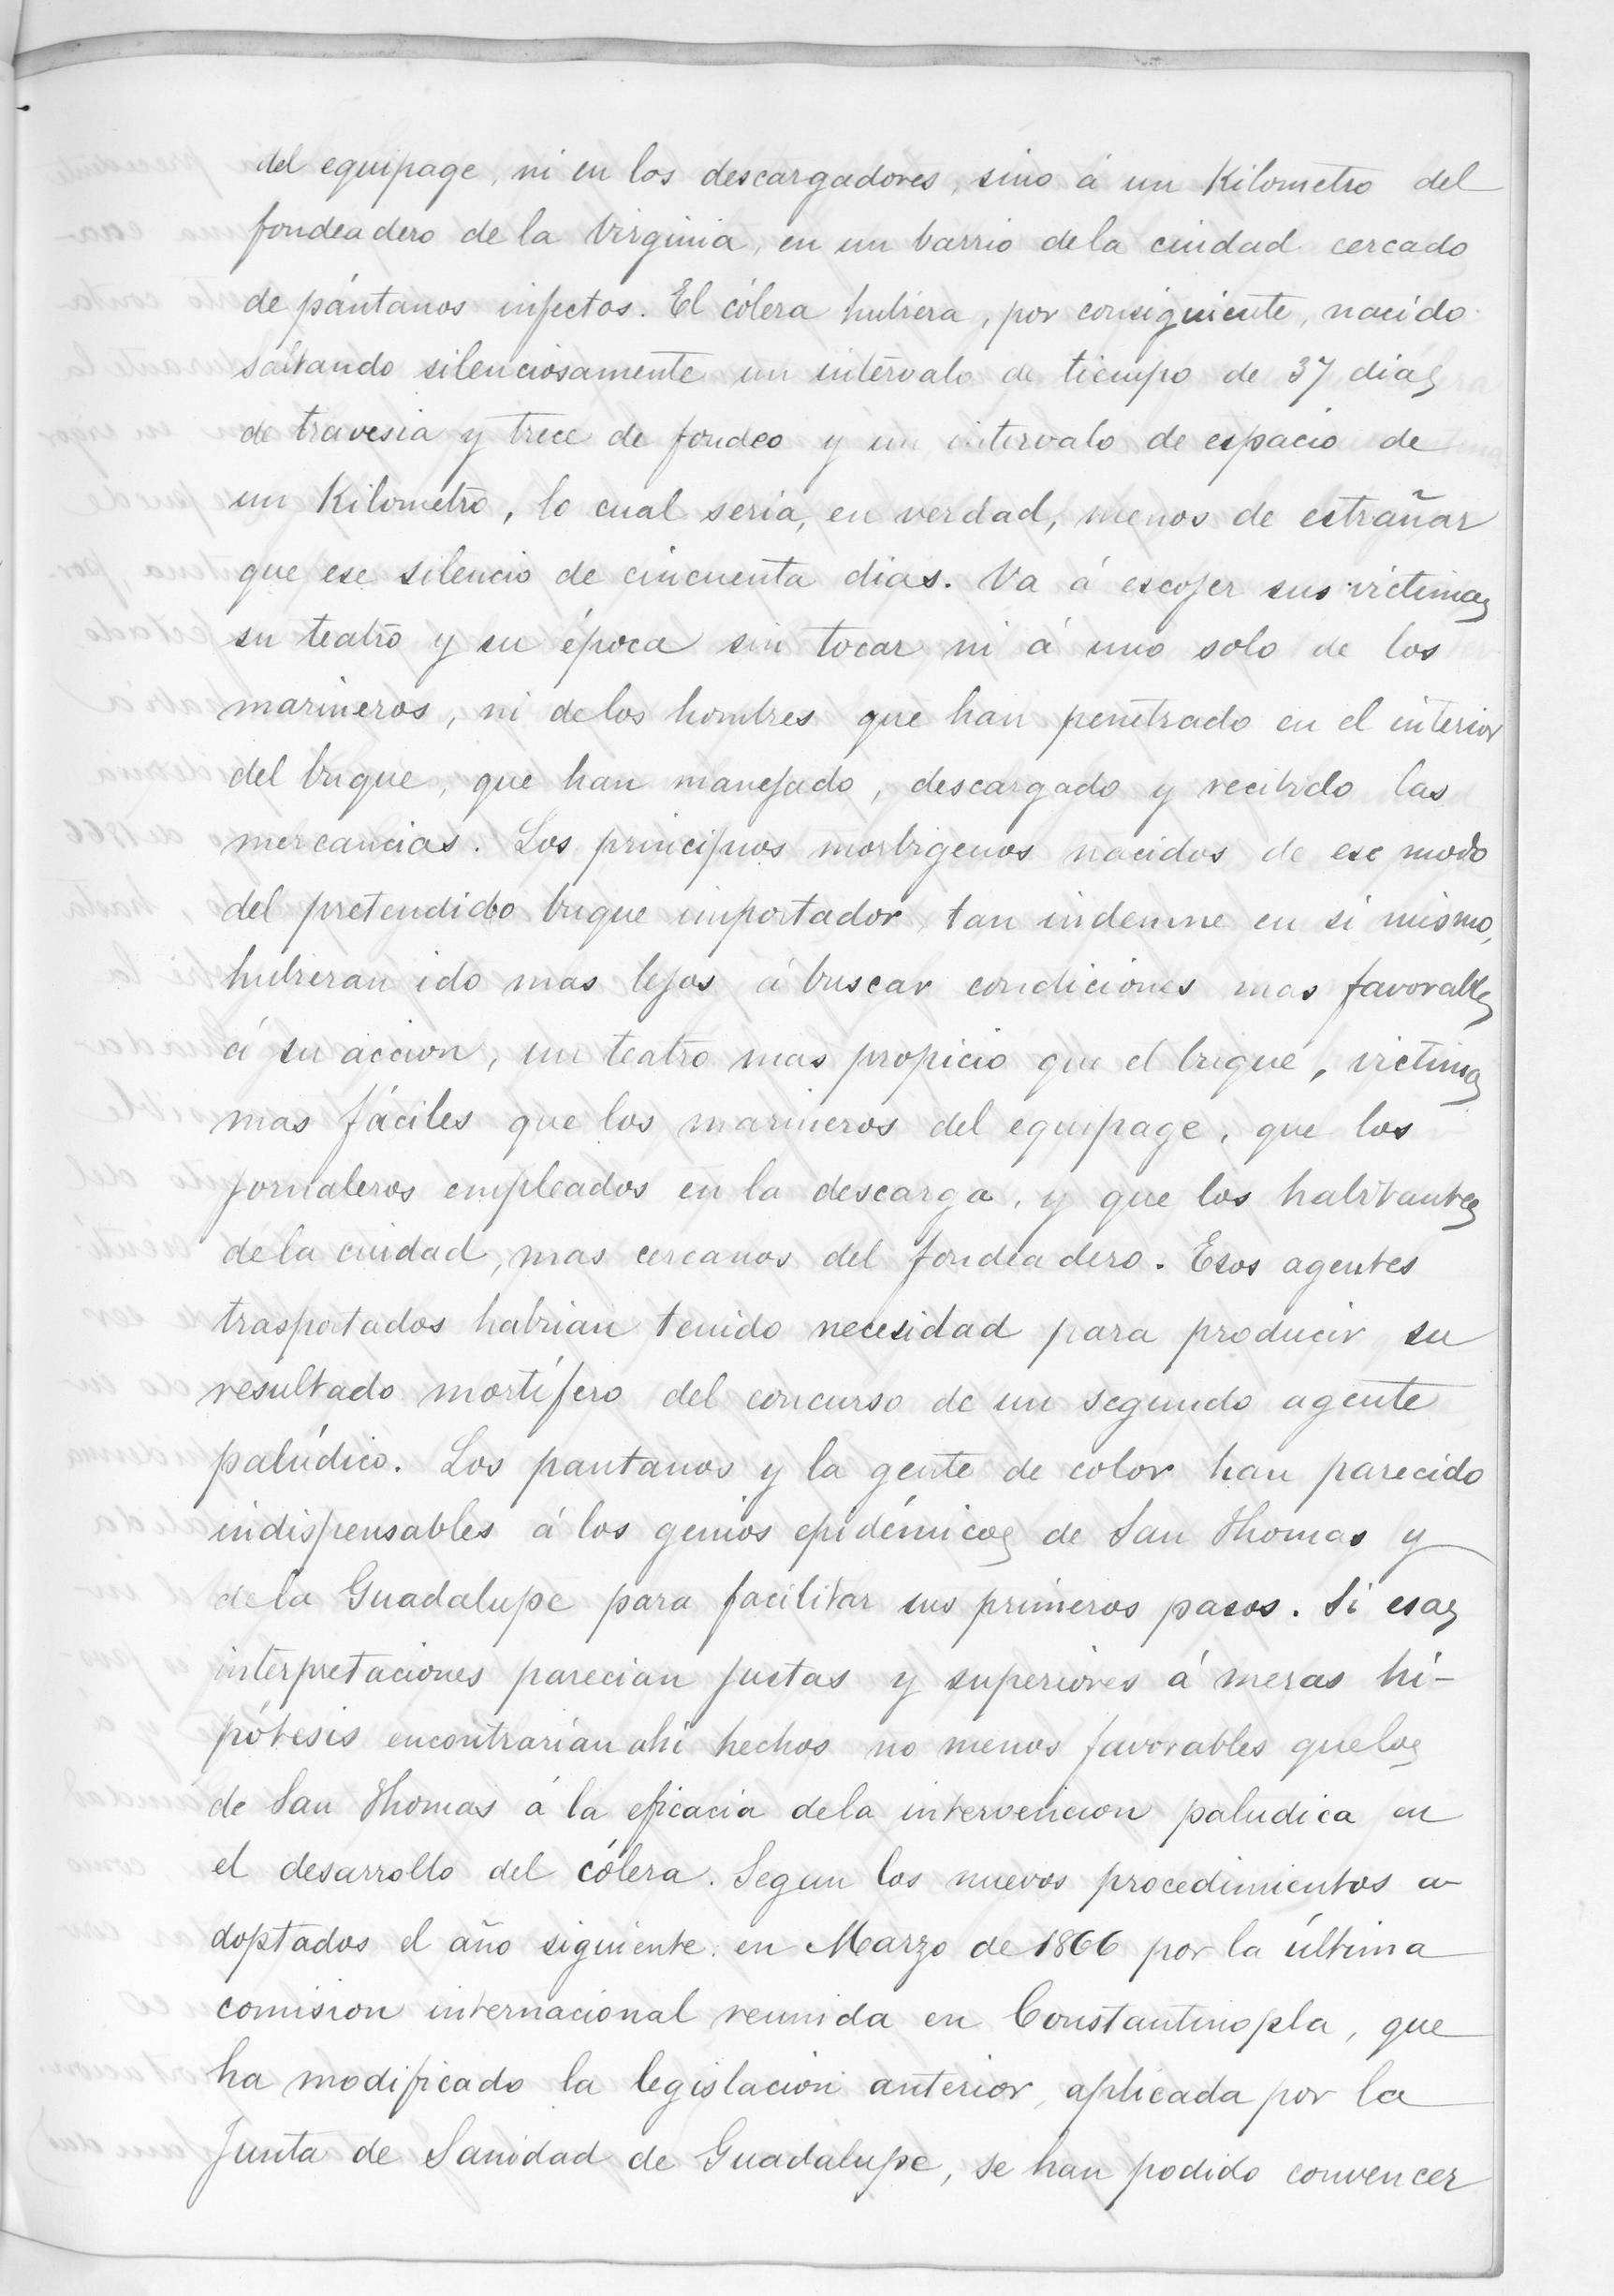 del equipage, ni en los descargadores, sino á un Kilometro del
fondeadero de la Virginia, en un barrio de la ciudad cercado
de pántanos infectos. El cólera hubiera, por consiguiente, nacido
saltando silenciosamente un intérvalo de tiempo de 37 dias
de travesia y trece de fondeo y un intervalo de espacio de
un Kilometro, lo cual seria, en verdad, menos de estrañar
que ese silencio de cincuenta dias. Va á escojer sus victimas
su teatro y su época sin tocar ni á uno solo de los
marineros, ni de los hombres que han penetrado en el interior
del buque, que han manejado, descargado y recibido las
mercancias. Los principios morbigenos nacidos de ese modo
del pretendido buque importador, tan indemne en si mismo,
hubieran ido mas lejos á buscar condiciones mas favorables
á su accion, un teatro mas propicio que el buque, victimas
mas fáciles que los marineros del equipage, que los
jornaleros empleados en la descarga, y que los habitantes
de la ciudad, mas cercanos del fondeadero. Esos agentes
trasportados habrian tenido necesidad para producir su
resultado mortífero del concurso de un segundo agente
palúdico. Los pantanos y la gente de color han parecido
indispensables á los genios epidémicos de San Thomas y
de la Guadalupe para facilitar sus primeros pasos. Si esas
interpretaciones parecian justas y superiores á meras hi-
pótesis encontrarían ahi hechos no menos favorables que los
de San Thomas á la eficacia de la intervencion paludica en
el desarrollo del cólera. Segun los nuevos procedimientos a-
doptados el año siguiente, en Marzo de 1866 por la última
comision internacional reunida en Constantinopla, que
ha modificado la legislacion anterior, aplicada por la
Junta de Sanidad de Guadalupe, se han podido convencer